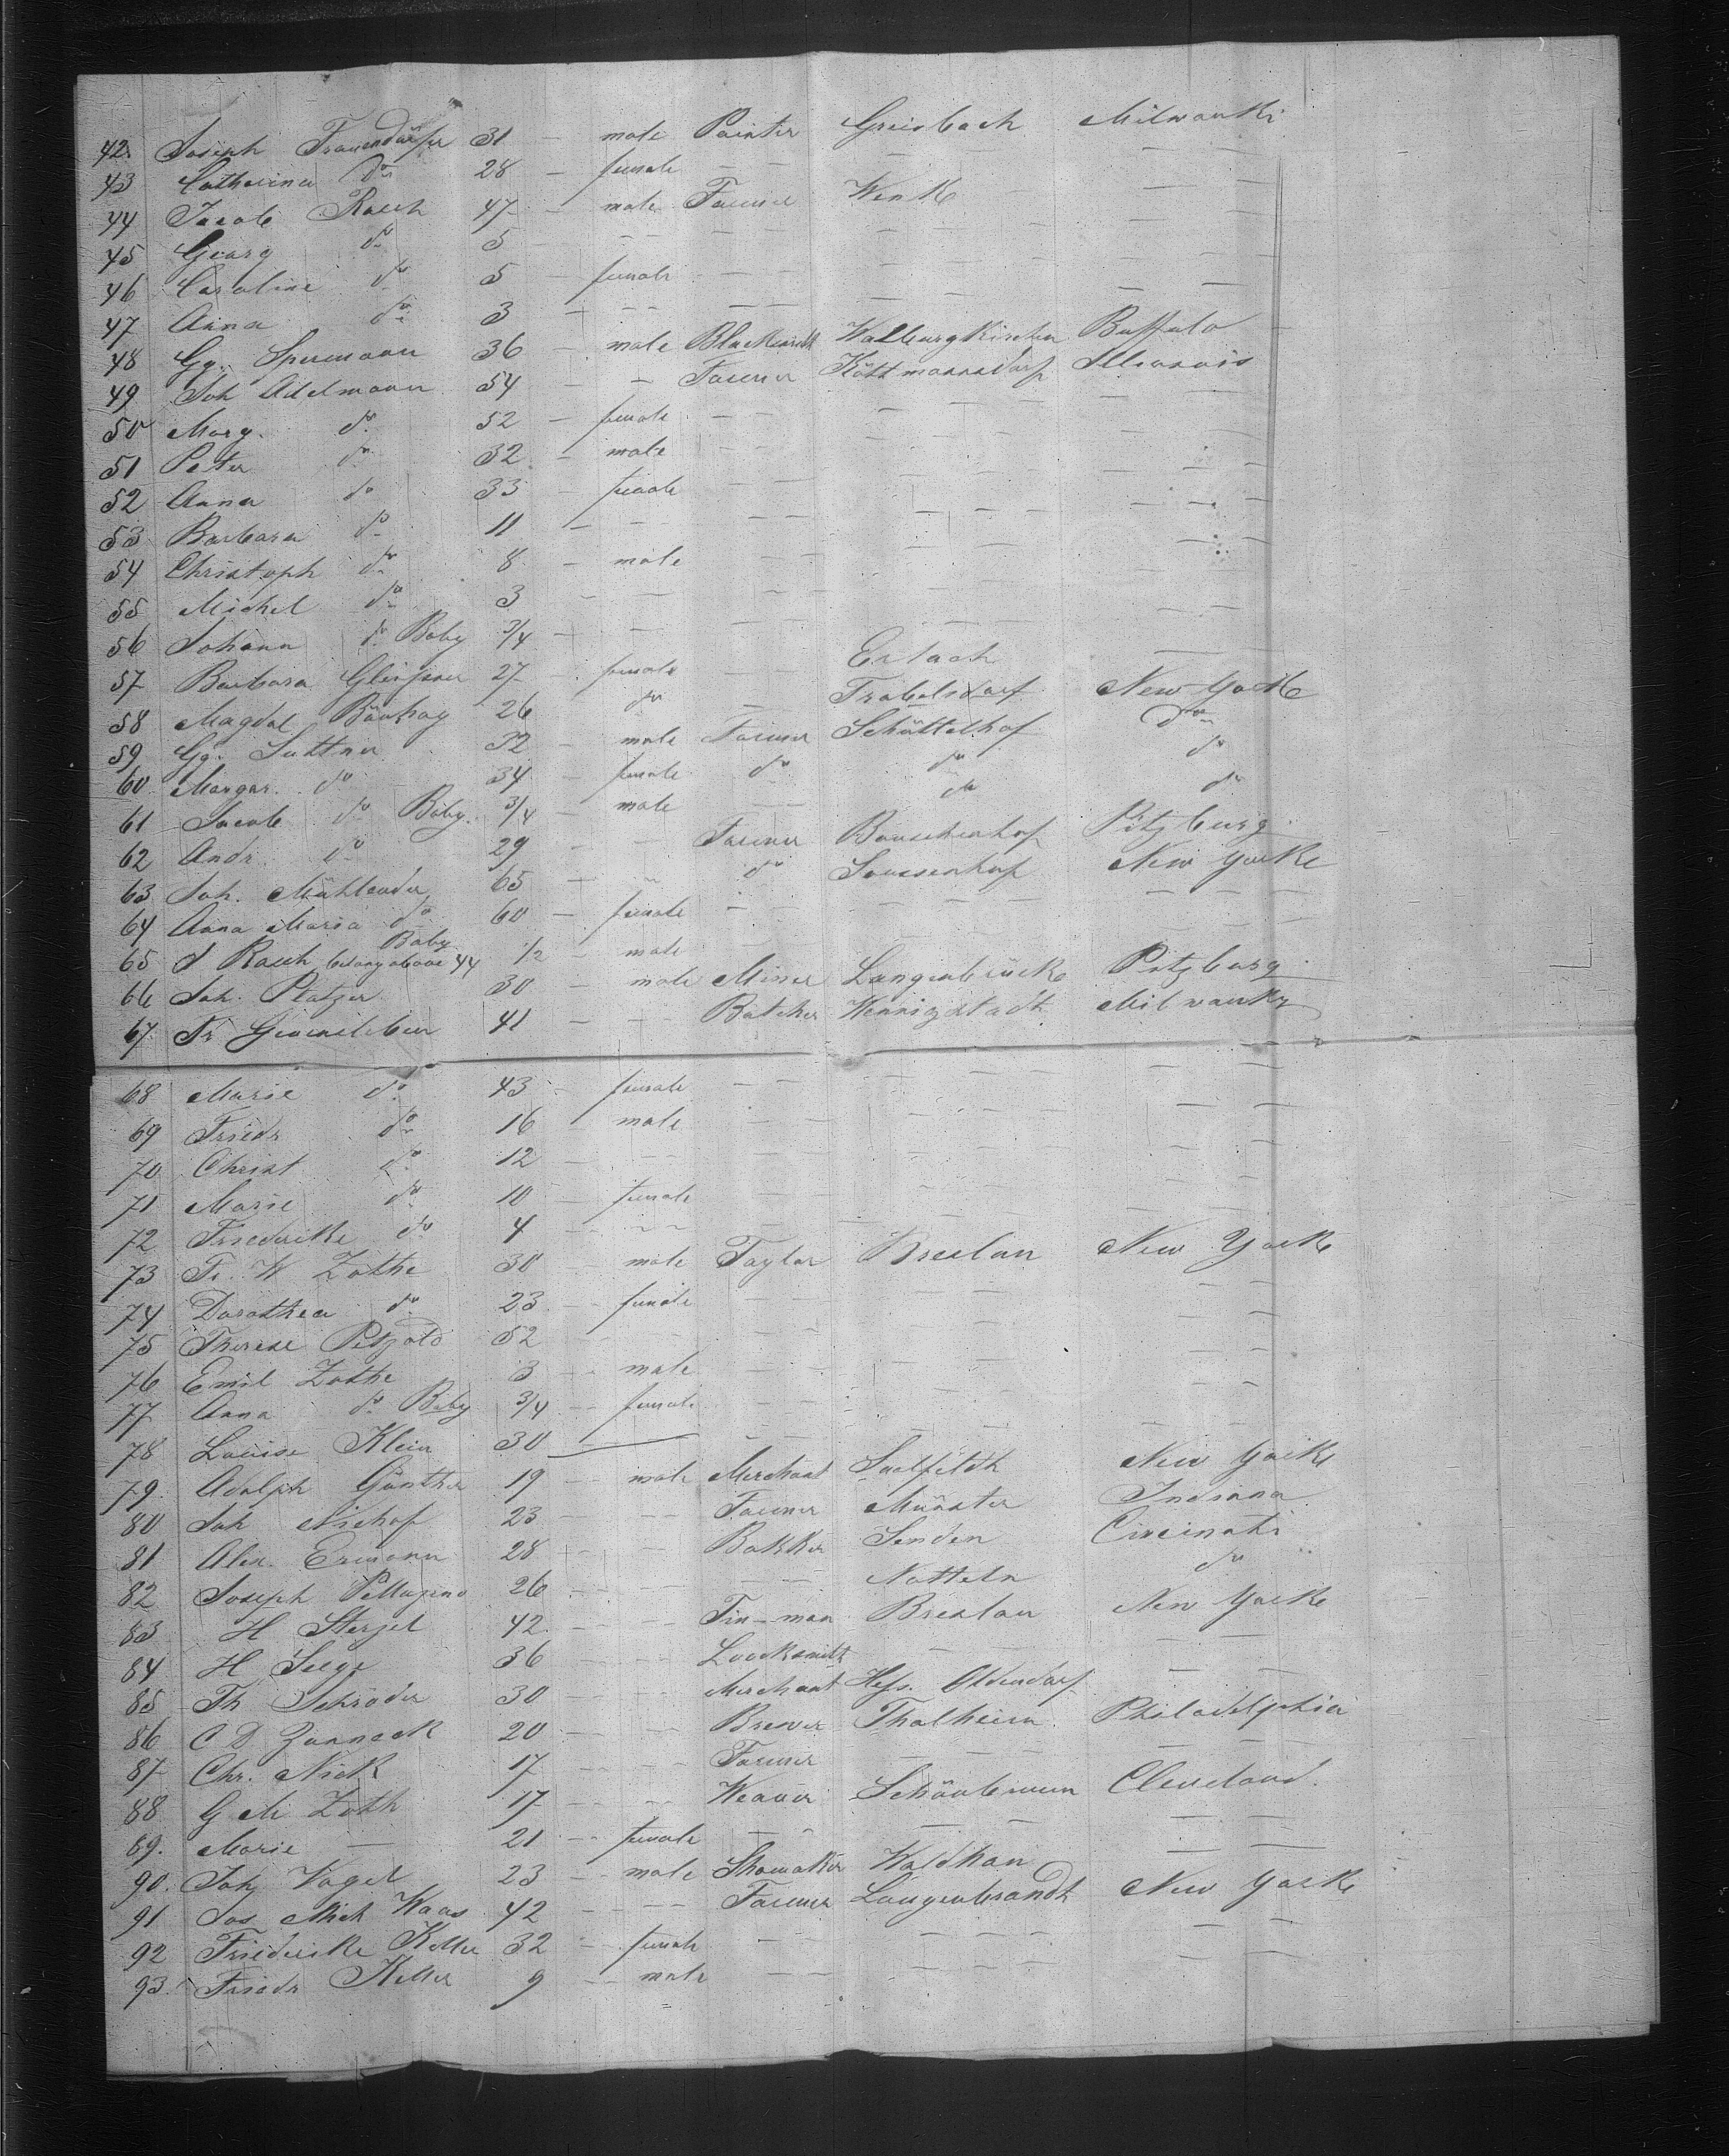 42. Joseph Frauendörfer 31 - male Painter Griesbach Milwauki
43 Catharina do 28 - female - - - - - -
44 Jacob Rauh 47 - male Farmer Wenk - -
45 Georg do 5 - - - - - - - - -
46 Caroline do 5 - female - - - - - -
47 Anna do 3 - - - - - - - - -
48 Gg. Spermann 36 - male Blacksmith Walburgkirchen Buffalo
49 Joh Adelmann 54 - - Farmer Köttmannsdorf Illionois
50 Marg. do 52 - female - - - - - -
51 Peter do 32 - male - - - - - -
52 Anna do 33 - female - - - - - -
53 Barbara do 11 - - - - - - - -
54 Christoph do 8 - male - - - - - -
55 Michel do 3 - - - - - - - -
56 Johann do Baby 3/4 - - - - - - - -
57 Barbara 27 - female - - Erlach -
58 Magdal 26 do - Trabelsdorf New-York
59 Gg. Suttner 32 - male Farmer Schüttelhof do
60 Margar. do 34 - female do do do
61 Jacob do Baby. 3/4 - male - - do do
62 Andr. do 29 - - Farmer Bauschenhof Pitzburg
63 Joh. 65 - - do New Yorke
64 Anna Maria do 60 - female - - - - - -
65 J Rauh Baby belong above 44 1/2 - male - - - - - -
66 Joh. Platzer 30 - male Miner Langenbrücke Pitzburg
67. Fr 41 - - - Butcher Hennigstadt Milwauky
68 Marie do 43 - female - - - - - -
69 Friedr do 16 - male - - - - - -
70 Christ do 12 - - - - - - - -
71 Marie do 10 - female - - - - - -
72 Friederike do 4 - - - - - - - -
73 Fr. W Zothe 30 - male Taylor Breslau New Yorke
74 Dorothea do 23 - female - - - - - -
75 Therese Petzold 52 - - - - - - - -
76 Emil Zothe 3 - male - - - - - -
77 Anna do Baby 3/4 - female - - - - - -
78 Louise Klein 30 - - - - - - -
79. Adolph Günther 19 - male Merchant Saalfeldt New Yorke
80 Joh Nichof 23 - - - Farmer Münster Indiana
81 Alex. Ermann 28 - - - Bakker Senden Circinati
82 Joseph 26 - - - - - Notteln do
83 H Sterzel 42. - - - Tin-man Breslau New Yorke
84 H Seege 36 - - - Loocksmith - - - -
85 Th Schröder 30 - - - Merchant Hess. Oldendorf - -
86 C D Zanneck 20 - - - Brewer Thalheim Philadelphia
87 Chr. Nick 17 - - - Farmer - - - - -
88 G M Zoth 17 - - - Weaver Schönbrunn Cleveland.
89. Marie - 21 - female - - - - - -
90. Joh Vogel 23 - male Shomaker Waldhan - -
91 Jos Mich Haas 42 - - - Farmer Langenbrandt New Yorke
92 Friederike Keller 32 - female - - - - - -
93. Friedr Keller 9 - male - - - - - -